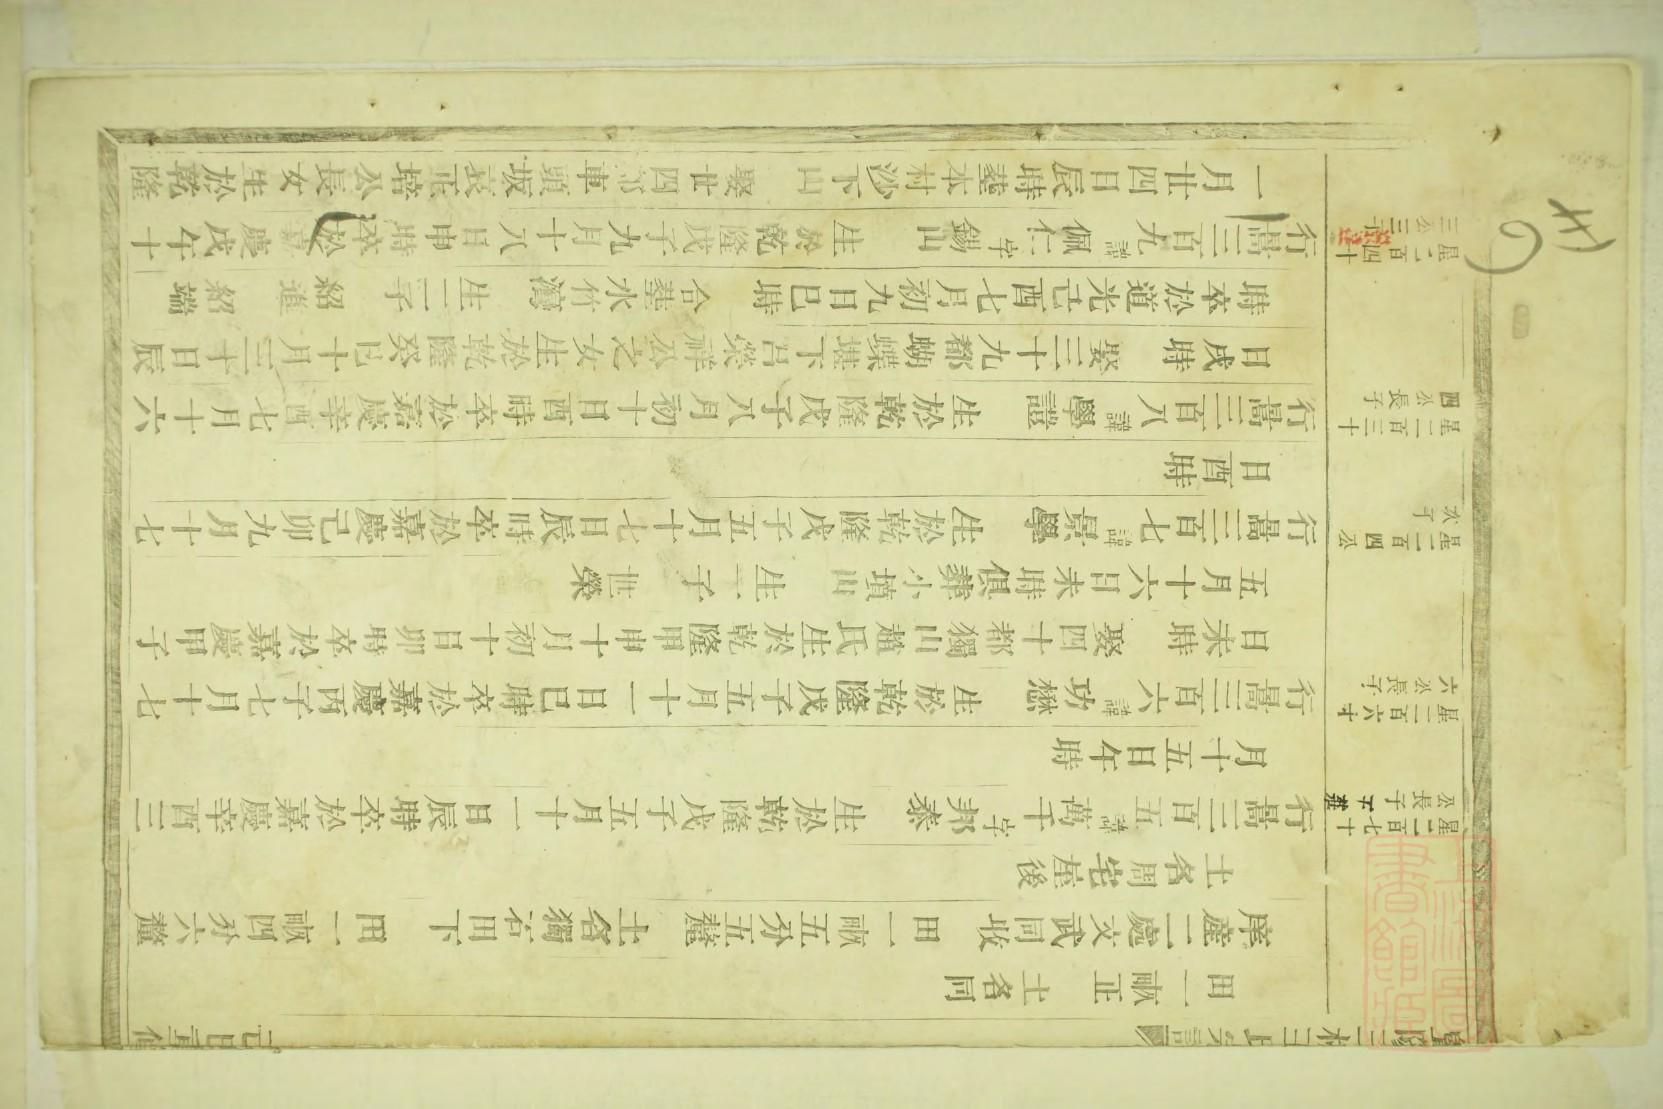 田一畝正 土名同
庠產一處文武同收 田一畝五分五釐 土名獨石田下 田一畝四分六釐
土名周宅屋後
星二百七十
公長子
行暠三百五 諱萬千 字邦泰 生於乾隆戊子五月十一日辰時卒於嘉慶辛酉三
月十五日午時
星二百六十
六公長子
行暠三百六 諱功懋 生於乾隆戊子五月十一日巳時卒於嘉慶丙子七月十七
日未時 娶四十都獨山趙氏生於乾隆甲申十月初十日卯時卒於嘉慶甲子
五月十六日未時俱葬小墳山 生一子 世榮
星二百四公
次子
行暠三百七 諱景學 生於乾隆戊子五月十七日辰時卒於嘉慶己卯九月十七
日酉時
星二百三十
四公長子
行暠三百八 諱學 生於乾隆戊子八月初十日酉時卒於嘉慶辛酉七月十六
日戌時 娶三十九都蝴蝶下呂榮祥公之女生於乾隆癸巳十月二十日辰
時卒於道光元酉七月初九日巳時 合葬水竹灣 生二子 紹進 紹端
星二百四十
三公三子
行暠三百九 諱佩仁 字錫山 生於乾隆戊子九月十八日申時卒於嘉慶戊午十
一月廿四日辰時葬本村沙下山 娶廿四都車頭坂裘正培公長女生於乾隆